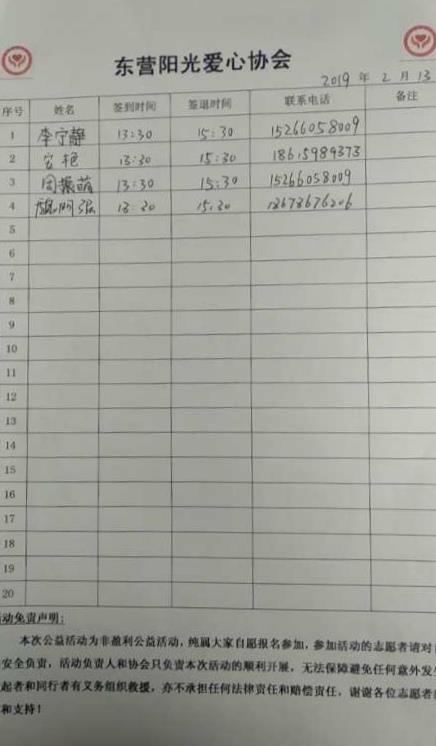 东营阳光爱心协会
2019 年 2 月 13
序号 姓名 签到时间 签退时间 联系电话 备注
1 李宁静 13:30 15:30 15266058009
2 13:30 15:30 18615989373
3 周振萌 13:30 15:30 15266058009
4 13:30 15:30
5
6
7
8
9
10
11
12
13
14
15
16
17
18
19
20
动免责声明:
本次公益活动为非盈利公益活动，纯属大家自愿报名参加，参加活动的志愿者请对
安全负责，活动负责人和协会只负责本次活动的顺利开展，无法保障避免任何意外发
起者和同行者有义务组织救援，亦不承担任何法律责任和赔偿责任，谢谢各位志愿者
和支持！